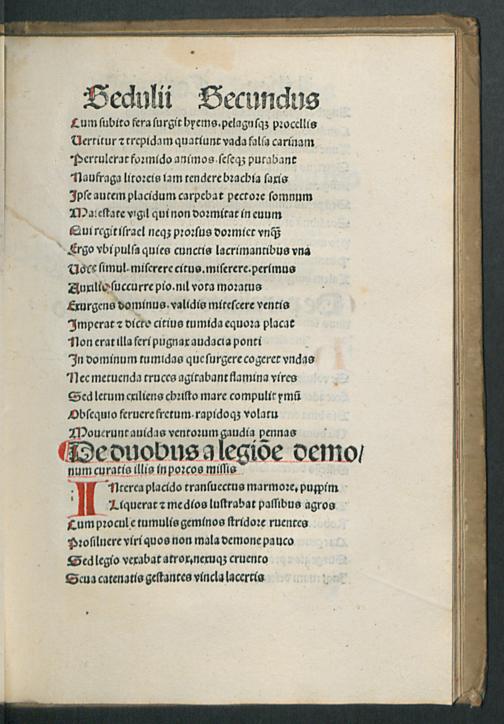 Sedulii Secundus
Cum subito fera surgit hyems. pelagusqꝫ procellis
Vertitur ⁊ trepidam quatiunt vada salsa carinam
Perculerat formido animos. seseqꝫ putabant
Naufraga litoreis iam tendere brachia saxis
Ipse autem placidum carpebat pectore somnum
Maiestate vigil qui non dormitat in euum
Qui regit israel neqꝫ prorsus dormiet vnqꝫ̄
Ergo vbi pulsa quies cunctis lacrimantibus vna
Voce simul. miserere citus. miserere. perimus
Auxilio succurre pio. nil vota moratus
Exurgens dominus. validis mitescere ventis
Imperat ⁊ dicto citius tumida equora placat
Non erat illa feri pugnax audacia ponti
In dominum tumidas que surgere cogeret vndas
Nec metuenda truces agitabant flamina vires
Sed letum exiliens christo mare compulit ymū
Obsequio feruere fretum. rapidoqꝫ volatu
Mouerunt auidas ventorum gaudia pennas
De duobus a legiōe demo/
num curatis illis in porcos missis
INterea placido transuectus marmore, puppim
Liquerat ⁊ medios lustrabat passibus agros
Cum procul e tumulis geminos stridore ruentes
Prosiluere viri quos non mala demone pauco
Sed legio vexabat atrox, nexuqꝫ cruento
Seua catenatis gestantes vincla lacertis